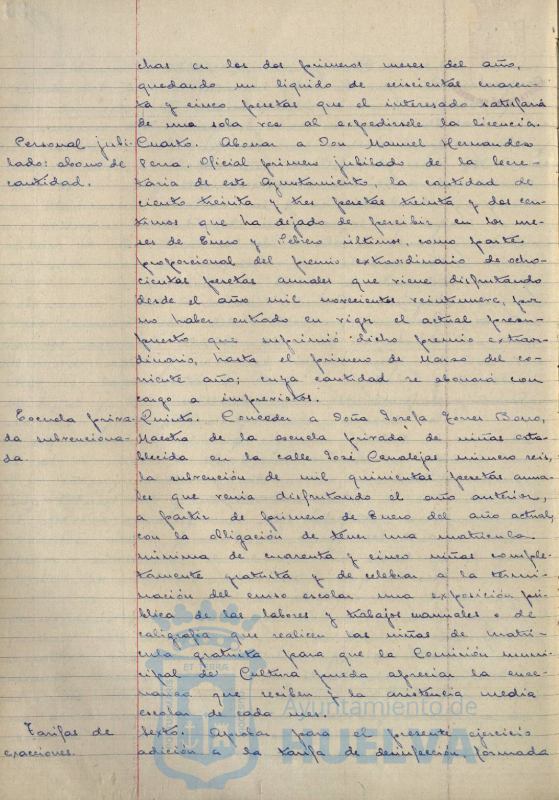 chas en los dos primeros meses del año,
quedando un líquido de seiscientas cuaren-
ta y cinco pesetas que el interesado satisfará
de una sola vez al expedírsele la licencia.
Personal jubi-
lado: abono de
cantidad.
Cuarto. Abonar a Don Manuel Hernandez
Parra, Oficial primero jubilado de la Secre-
taría de este Ayuntamiento, la cantidad de
ciento treinta y tres pesetas treinta y dos cen-
timos que ha dejado de percibir en los me-
ses de Enero y Febrero ultimos, como parte
proporcional del premio extraordinario de ocho-
cientas pesetas anuales que viene disfrutando
desde el año mil novecientos veintinueve, por
no haber entrado en vigor el actual presu-
puesto que suprimió dicho premio extraor-
dinario, hasta el primero de Marzo del co-
rriente año; cuya cantidad se abonará con
cargo a imprevistos.
Escuela priva-
da subvenciona-
da.
Quinto. Conceder a Doña Josefa Torres
Maestra de la escuela privada de niñas esta-
blecida en la calle José Canalejas número seis,
la subvención de mil quinientas pesetas anua-
les que venia disfrutando el año anterior,
a partir de primero de Enero del año actual,
con la obligación de tener una matrícula
minima de cuarenta y cinco niñas comple-
tamente gratuita y de celebrar a la termi-
nación del curso escolar una exposición pú-
blica de las labores y trabajos manuales o de
caligrafia que realicen las niñas de matrí-
cula gratuita para que la Comisión muni-
cipal de Cultura pueda apreciar la ense-
ñanza que reciben y la asistencia media
escolar de cada mes.
Tarifas de
exacciones.
Sexto. Aprobar para el presente ejercicio
adición a la tarifa de desinfección, formada
ET TERRAE
Ayuntamiento de
HUELVA